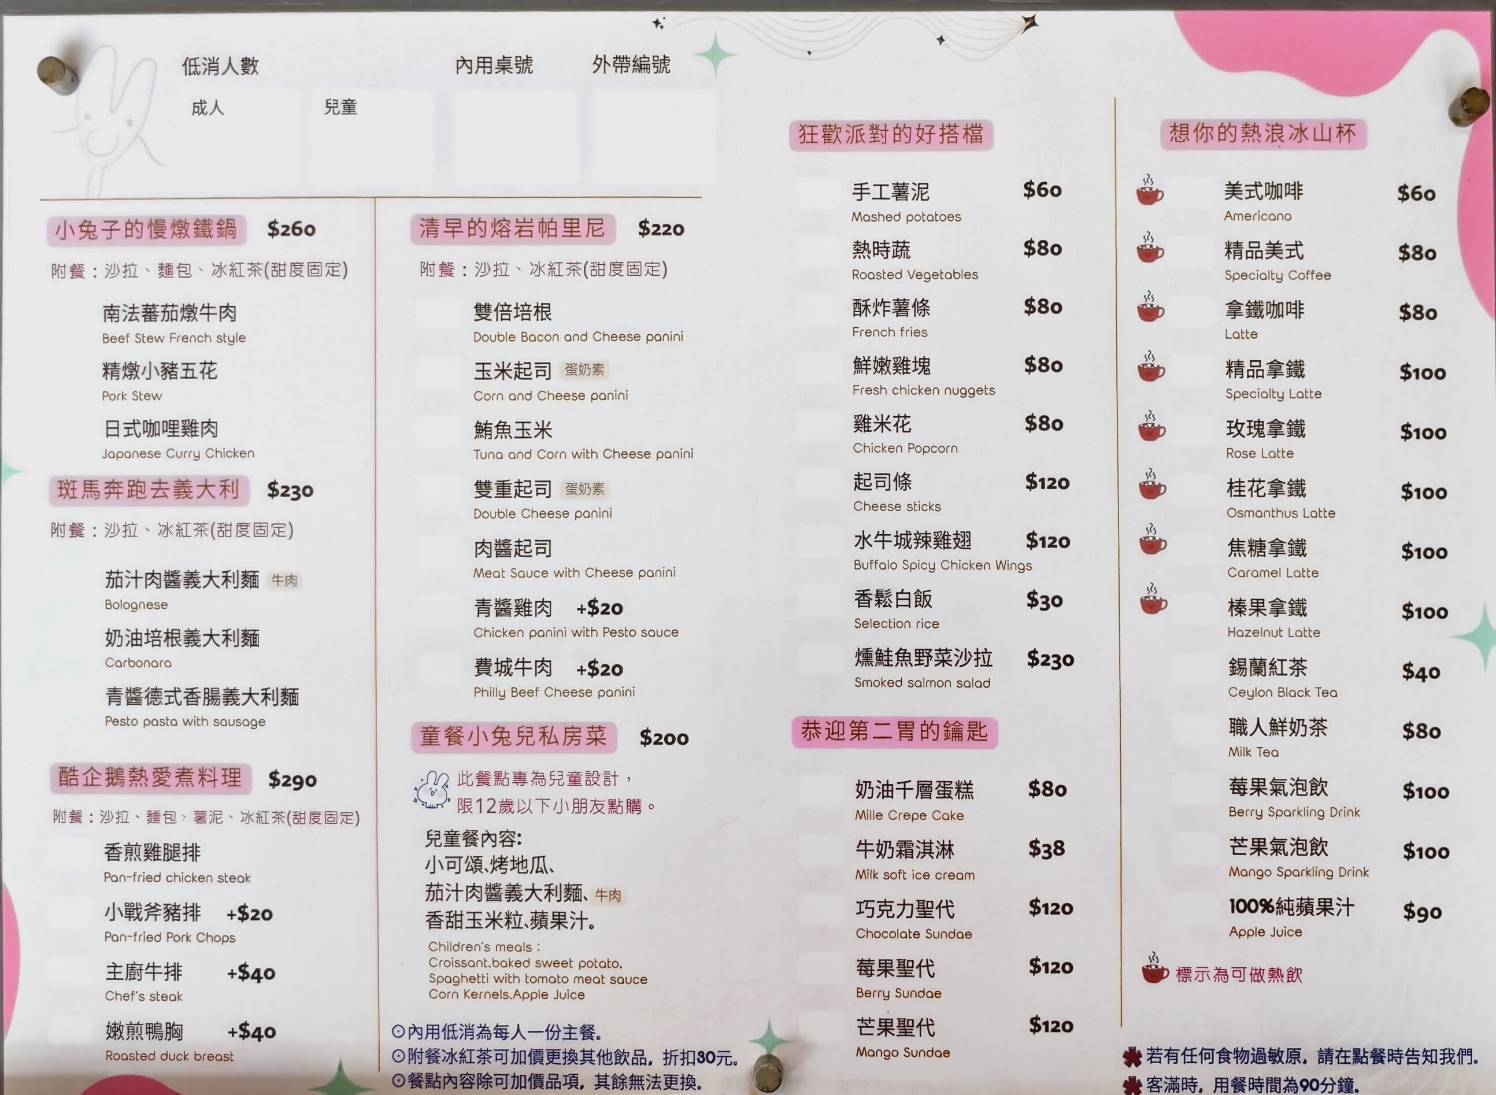 低消人數
成人
兒童
內用桌號
外帶編號
小兔子的慢燉鐵鍋 $260
附餐：沙拉、麵包、冰紅茶(甜度固定)
南法蕃茄燉牛肉
Beef Stew French style
精燉小豬五花
Pork Stew
日式咖哩雞肉
Japanese Curry Chicken
斑馬奔跑去義大利 $230
附餐：沙拉、冰紅茶(甜度固定)
茄汁肉醬義大利麵 牛肉
Bolognese
奶油培根義大利麵
Carbonara
青醬德式香腸義大利麵
Pesto pasta with sausage
酷企鵝熱愛煮料理 $290
附餐：沙拉、麵包、薯泥、冰紅茶(甜度固定)
香煎雞腿排
Pan-fried chicken steak
小戰斧豬排 +$20
Pan-fried Pork Chops
主廚牛排 +$40
Chef's steak
嫩煎鴨胸 +$40
Roasted duck breast
清早的熔岩帕里尼 $220
附餐：沙拉、冰紅茶(甜度固定)
雙倍培根
Double Bacon and Cheese panini
玉米起司 蛋奶素
Corn and Cheese panini
鮪魚玉米
Tuna and Corn with Cheese panini
雙重起司 蛋奶素
Double Cheese panini
肉醬起司
Meat Sauce with Cheese panini
青醬雞肉 +$20
Chicken panini with Pesto sauce
費城牛肉 +$20
Philly Beef Cheese panini
童餐小兔兒私房菜 $200
此餐點專為兒童設計，
限12歲以下小朋友點購。
兒童餐內容:
小可頌、烤地瓜、
茄汁肉醬義大利麵、牛肉
香甜玉米粒、蘋果汁。
Children's meals：
Croissant.baked sweet potato.
Spaghetti with tomato meat sauce
Corn Kernels.Apple Juice
⊙內用低消為每人一份主餐。
⊙附餐冰紅茶可加價更換其他飲品，折扣30元。
⊙餐點內容除可加價品項，其餘無法更換。
狂歡派對的好搭檔
手工薯泥 $60
Mashed potatoes
熱時蔬 $80
Roasted Vegetables
酥炸薯條 $80
French fries
鮮嫩雞塊 $80
Fresh chicken nuggets
雞米花 $80
Chicken Popcorn
起司條 $120
Cheese sticks
水牛城辣雞翅 $120
Buffalo Spicy Chicken Wings
香鬆白飯 $30
Selection rice
燻鮭魚野菜沙拉 $230
Smoked salmon salad
恭迎第二胃的鑰匙
奶油千層蛋糕 $80
Mille Crepe Cake
牛奶霜淇淋 $38
Milk soft ice cream
巧克力聖代 $120
Chocolate Sundae
莓果聖代 $120
Berry Sundae
芒果聖代 $120
Mango Sundae
想你的熱浪冰山杯
美式咖啡 $60
Americano
精品美式 $80
Specialty Coffee
拿鐵咖啡 $80
Latte
精品拿鐵 $100
Specialty Latte
玫瑰拿鐵 $100
Rose Latte
桂花拿鐵 $100
Osmanthus Latte
焦糖拿鐵 $100
Caramel Latte
榛果拿鐵 $100
Hazelnut Latte
錫蘭紅茶 $40
Ceylon Black Tea
職人鮮奶茶 $80
Milk Tea
莓果氣泡飲 $100
Berry Sparkling Drink
芒果氣泡飲 $100
Mango Sparkling Drink
100%純蘋果汁 $90
Apple Juice
標示為可做熱飲
若有任何食物過敏原，請在點餐時告知我們。
客滿時，用餐時間為90分鐘。